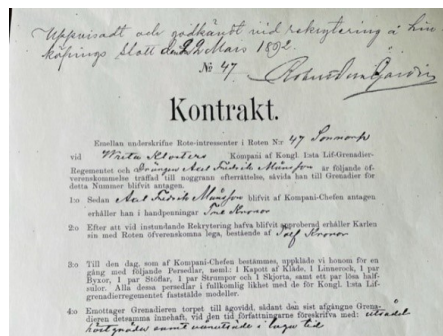 Uppvisadt och godkändt vid rekrytering å Lin
köpings slott den 22 Mars 1892.
No 47
Kontrakt.
Emellan underskrifne Rote-intressenter i Roten N:r 47 Sonnorp
vid Wreta Klosters Kompani af Kongl. 1:sta Lif-Grenadier-
Regementet och Drängen Axel Fredrik Månsson är följande öf-
verenskommelse träffad till noggran efterrättelse, såvida han till Grenadier för
detta Nummer blifvit antagen.
1:o Sedan Axel Fredrik Månsson blifvit af Kompani-Chefen antagen
erhåller han i handpenningar Två Kronor
2:o Efter att vid instundande Rekrytering hafva blifvit approberad erhåller Karlen
sin med Roten öfverenskomna lega, bestående af Tolf Kronor
3:o Till den dag, som af Kompani-Chefen bestämmes, uppkläde vi honom för en
gång med följande Persedlar, neml.: 1 Kapott af Kläde, 1 Linnerock, 1 par
Byxor, 1 par Stöflar, 1 par Strumpor och 1 Skjorta, samt ett par lösa half-
sulor. Alla dessa persedlar i fullkomlig likhet med de för Kongl. 1:sta
Lifgrenadierregementet fastställde modeller.
4:o Emottager Grenadieren torpet till ägovidd, sådant den sist afgångne Grena-
dieren detsamma innehaft, med vid den tid författningarne föreskrifva med: utsådd
höstgröda samt